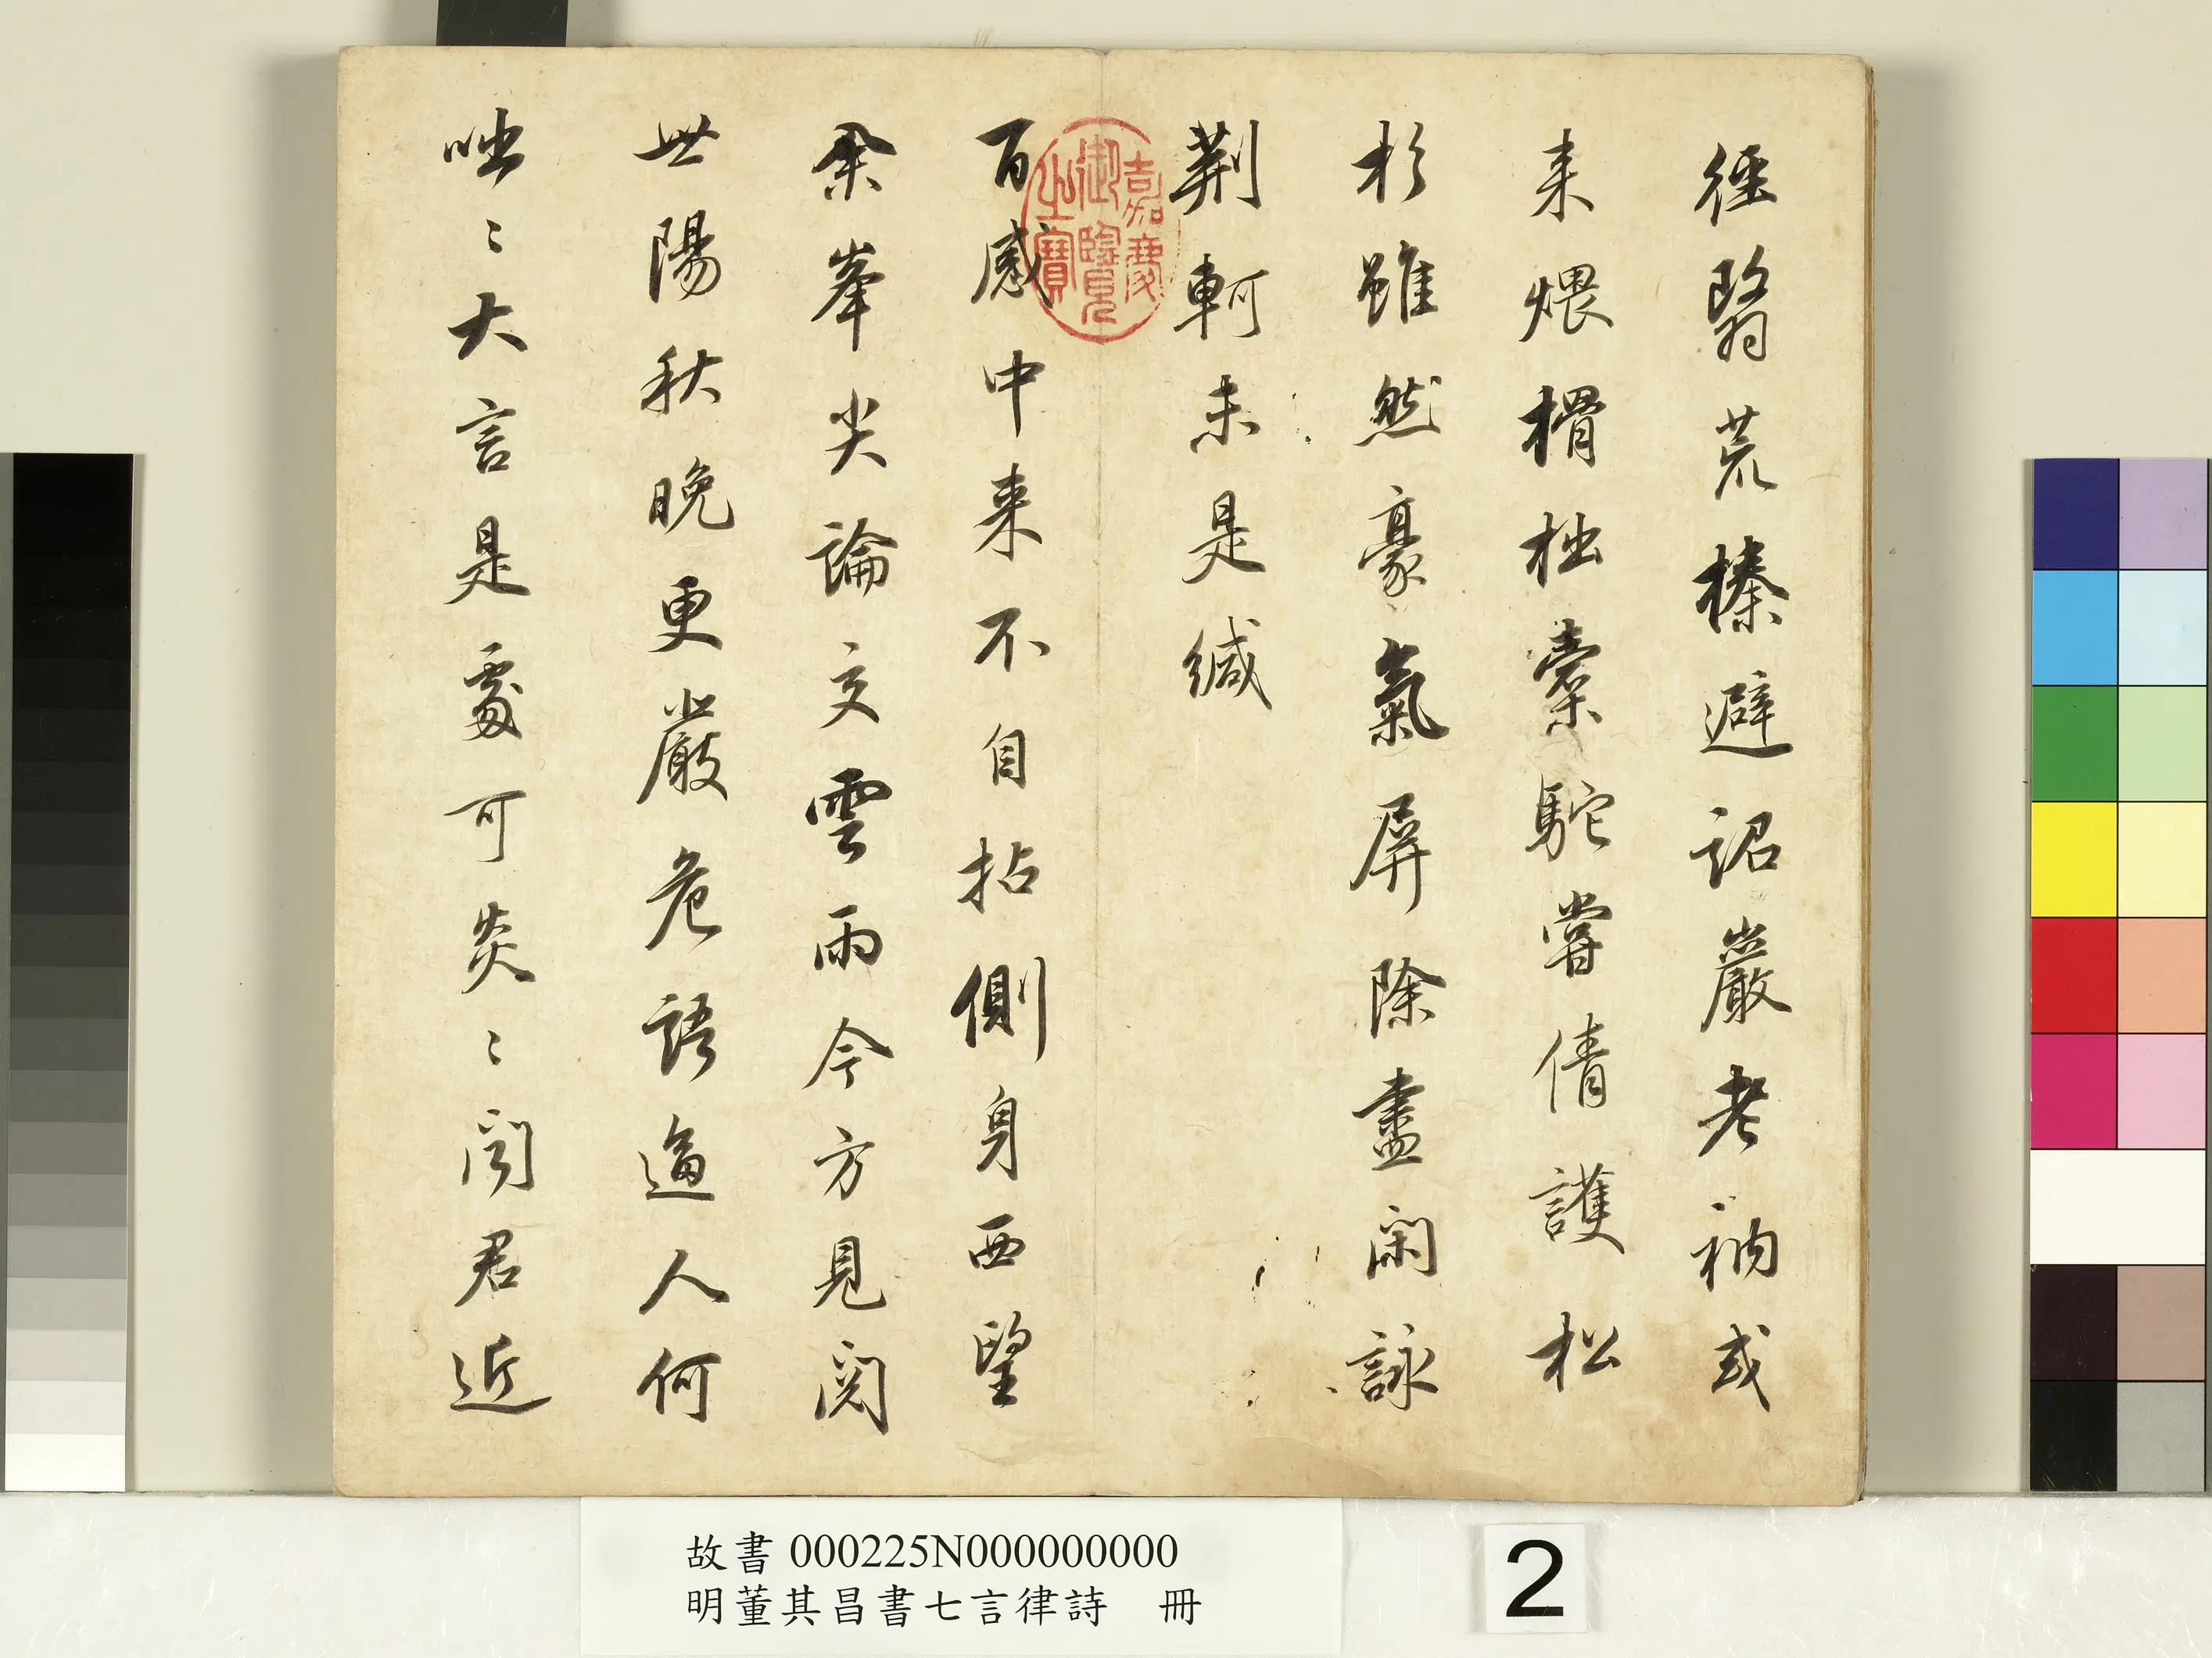 徑翳荒榛避詔巖老衲或
來煨榾柮橐駝嘗倩護松
杉雖然豪氣屏除盡閑詠
荊軻未是緘
百感中來不自拈側身西望
眾峯尖論文雲雨今方見閱
世陽秋晚更嚴危語逼人何
咄〻大言是處可炎〻閉君近
嘉慶御覽之寶
故書 000225N000000000
明董其昌書七言律詩 冊
2